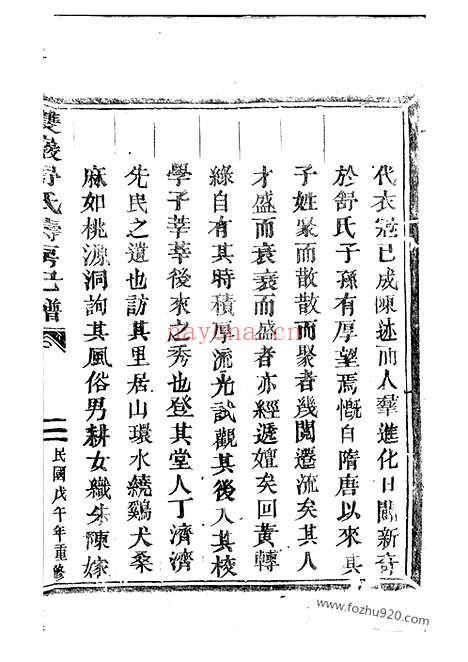 代衣冠已成陳迹而人羣進化日闢新奇
於舒氏子孫有厚望焉慨自隋唐以來其
子姓聚而散散而聚者幾閱遷流矣其人
才盛而衰衰而盛者亦經遞嬗矣回黃轉
綠自有其時積厚流光試觀其後入其校
學子莘莘後來之秀也登其堂人丁濟濟
先民之遺也訪其里居山環水繞鷄犬桑
麻如桃源洞詢其風俗男耕女織朱陳嫁
雙 舒氏壽房己譜
二
民國戊午年重修
nayona.cn
www.fozhu920.com